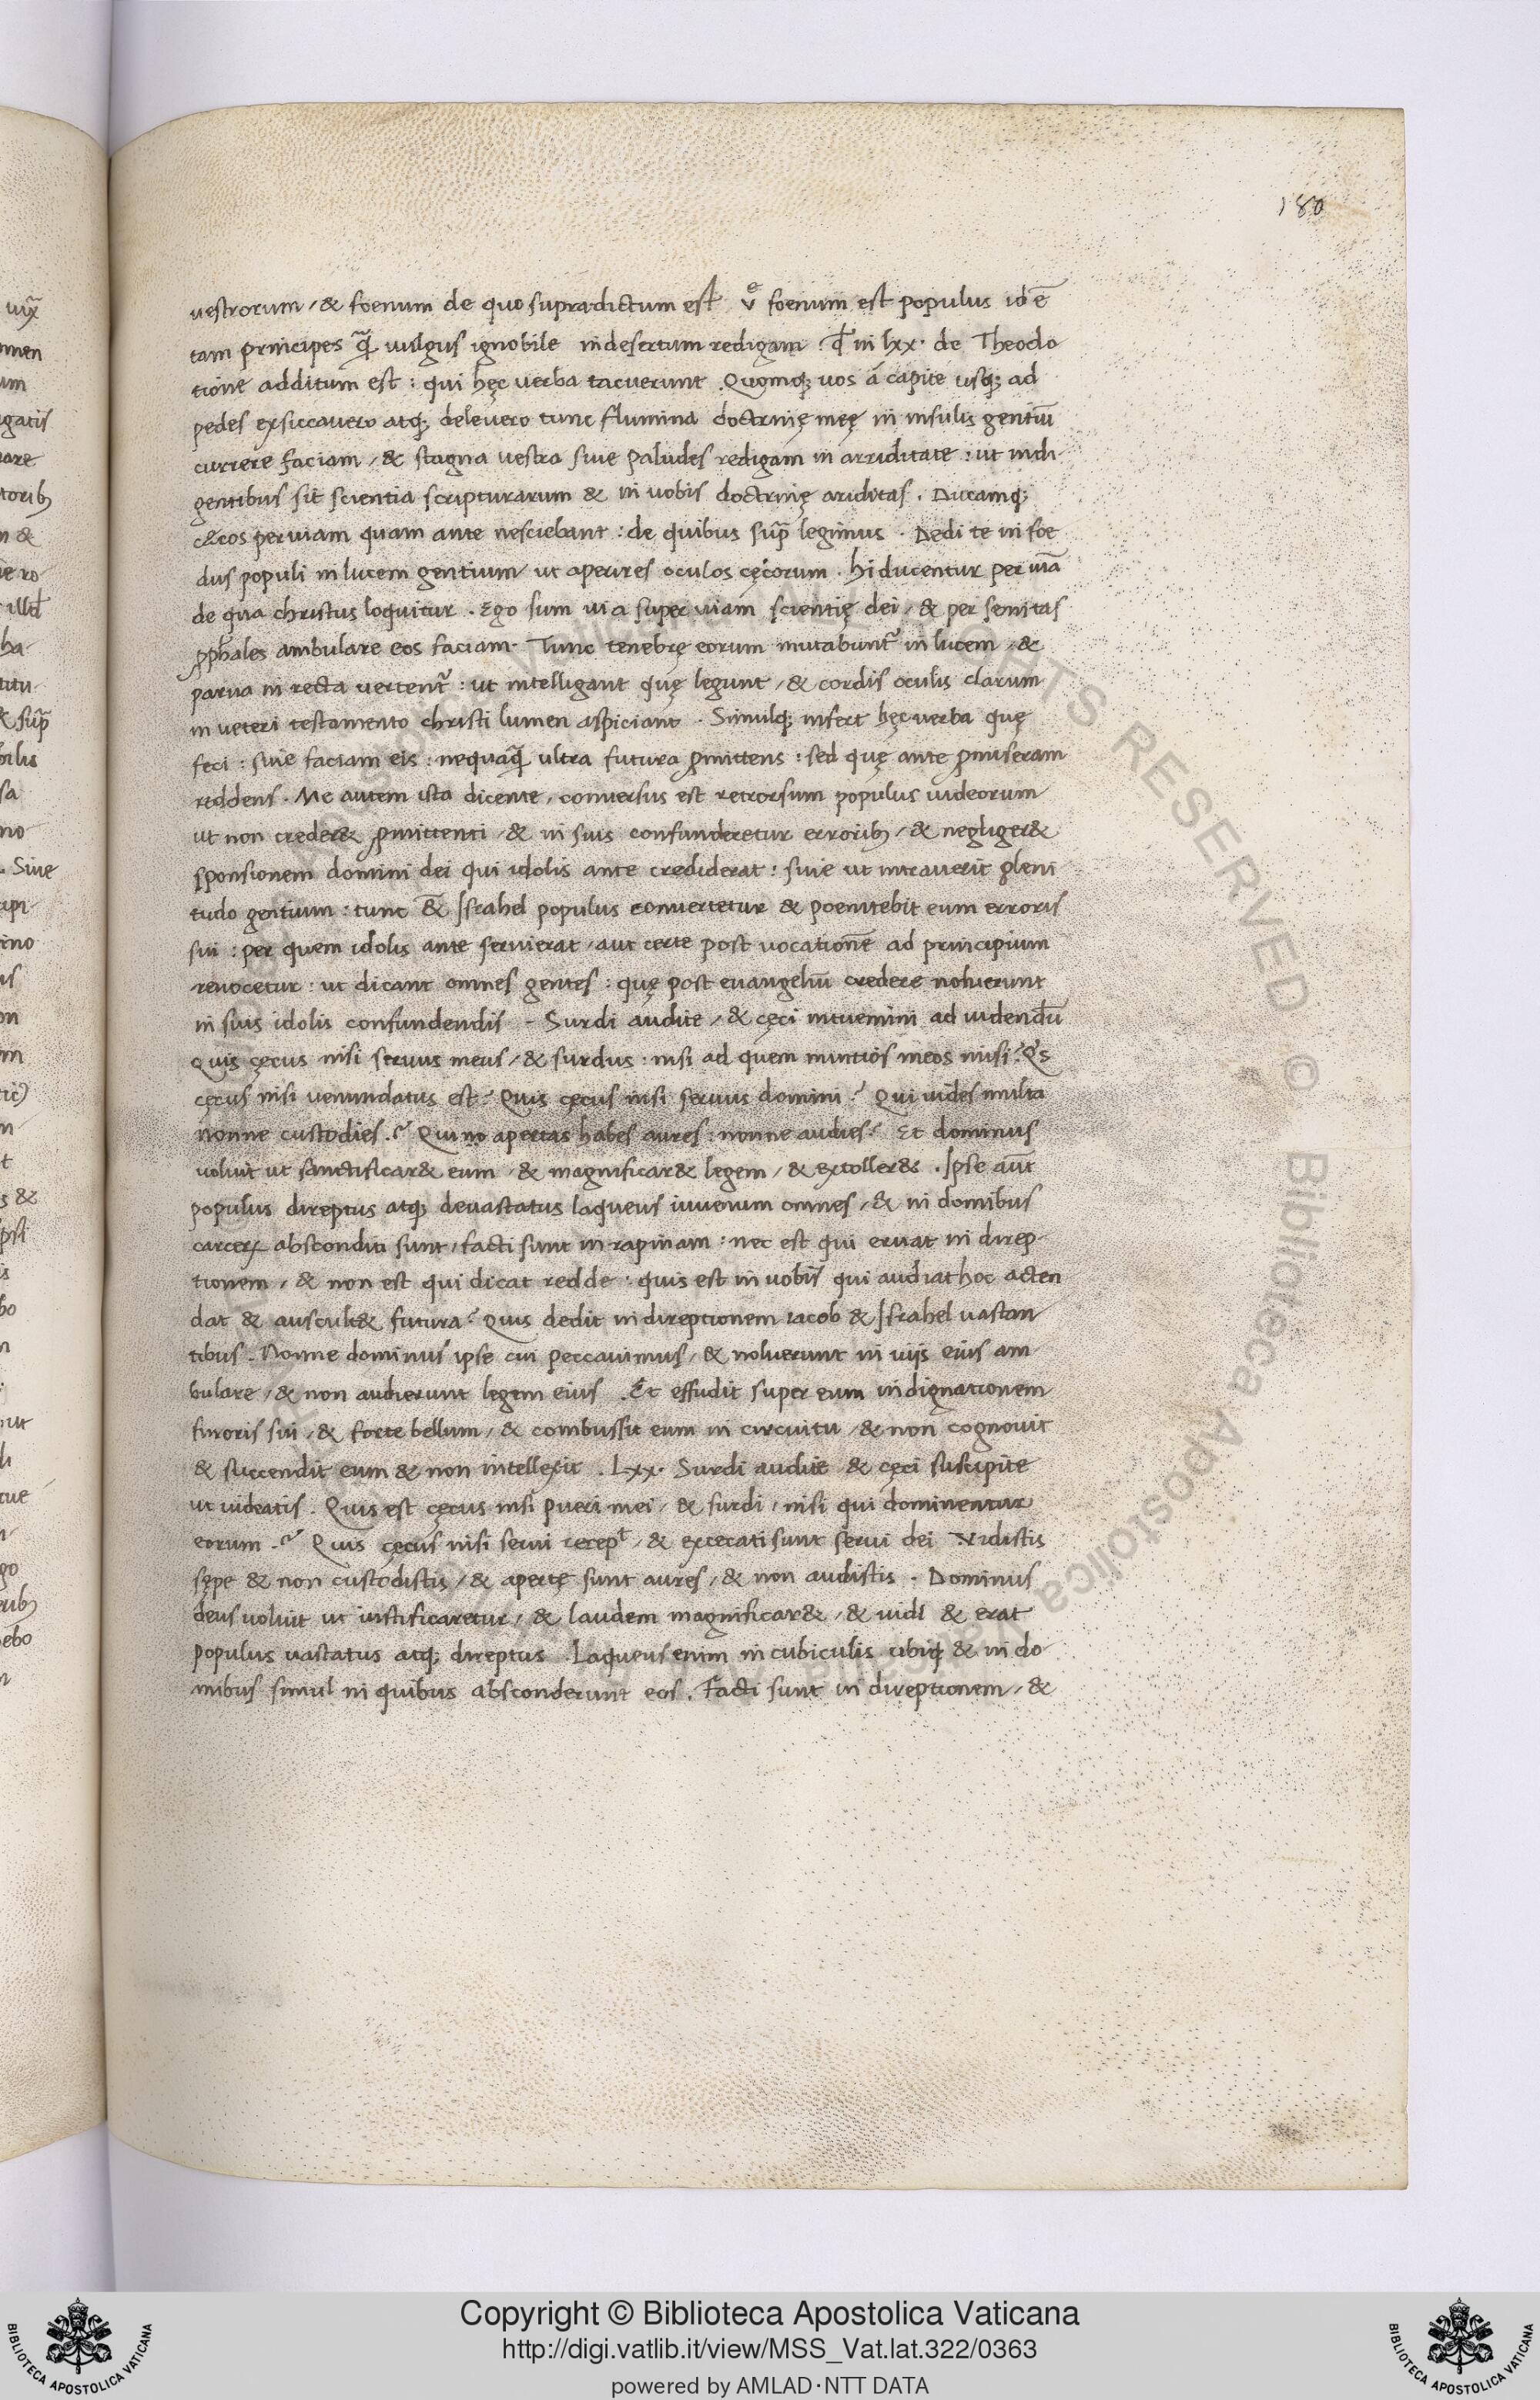 180
vestrorum / & foenum de quo supradictum est ve foenum est populus id ē
tam principes q̄ vulgus ignobile in desertum redigam . qđ in lxx . de Theodo
tione additum est : qui hęc verba tacuerunt . Quomq; vos a capite usq; ad
pedes exsiccavero atq; delevero tunc flumina doctrinę meę in insulis gentiū
currere faciam / & stagna vestra sive paludes redigam in arriditate : ut in di
gentibus sit scientia scripturarum & in vobis doctrinę ariditas . Ducamq;
cęcos per viam quam ante nesciebant : de quibus sup̄ legimus . Dedi te in foe
dus populi in lucem gentium ut aperires oculos cęcorum . hi ducentur per viā
de qua christus loquitur . Ego sum via super viam scientię dei / & per semitas
p̱phales ambulare eos faciam . Tunc tenebrę eorum mutabunt᷑ in lucem / &
parva in recta vertent᷑ : ut intelligant quę legunt / & cordis oculis clarum
in veteri testamento christi lumen aspiciant . Simulq; infert hęc verba quę
feci : sive faciam eis : nequaq̄ ultra futura ꝓmittens : sed quę ante ꝓmiseram
reddens . Me autem ista dicente , conversus est retrorsum populus iudeorum
ut non creder& ꝓmittenti / & in suis confunderetur errorib; / & negliger&
sponsionem domini dei qui idolis ante crediderat : sive ut intraverit pleni
tudo gentium : tunc & Israhel populus convertetur & poenitebit eum erroris
sui : per quem idolis ante servierat / aut certe post vocationē ad principium
revocetur : ut dicant omnes gentes : quę post evangeliū credere noluerunt
in suis idolis confundendis - Surdi audite / & cęci intuemini ad videndū
Quis cęcus nisi servus meus / & surdus : nisi ad quem nuntios meos misi ? Qs
cęcus nisi venundatus est ? Quis cęcus nisi servus domini ? Qui vides multa
nonne custodies . ? Qui no apertas habes aures : nonne audies ? Et dominus
voluit ut sanctificar& eum / & magnificar& legem / & extoller& . Ipse aūt
populus direptus atq; devastatus laqueus iuvenum omnes / & in domibus
carceꝝ absconditi sunt / facti sunt in rapinam : nec est qui eruat in direp-
tionem / & non est qui dicat redde : quis est in vobis qui audiat hoc atten
dat & auscult& futura ? Quis dedit in direptionem iacob & Israhel vastan
tibus . Nonne dominus ipse cui peccavimus / & noluerunt in viis eius am
bulare / & non audierunt legem eius . Et effudit super eum indignationem
furoris sui / & forte bellum / & combussit eum in circuitu / & non cognovit
& succendit eum & non intellexit . Lxx . Surdi audite & cęci suscipite
ut videatis . Quis est cęcus nisi pueri mei / & surdi / nisi qui dominentur
eorum . ? Quis cęcus nisi servi / & excecati sunt servi dei Vidistis
sępe & non custodistis / & apertę sunt aures / & non audistis . Dominus
deus voluit ut iustificaretur / & laudem magnificar& / & vidi & erat
populus vastatus atq; direptus . Laqueus enim in cubiculis ubiq; & in do
mibus simul in quibus absconderunt eos . Facti sunt in direptionem / &
Copyright © Biblioteca Apostolica Vaticana
http://digi.vatlib.it/view/MSS_Vat.lat.322/0363
powered by AMLAD·NTT DATA